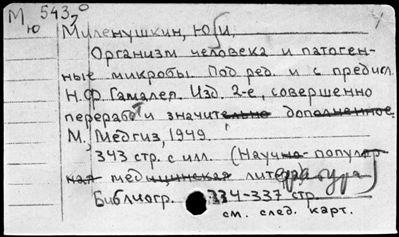 М 543,0
ю
Миленушкин, Ю. И.
Организм человека и патоген-
ные микробы. Под ред. и с предисл.
Н.Ф. Гамалеи. Изд. 2-е, совершенно
перераб. и значительно дополненное.
М., Медгиз, 1949.
343 стр. с илл. (Научно-популяр
ная медицинская литература)
Библиогр. 334-337 стр.
см. след. карт.